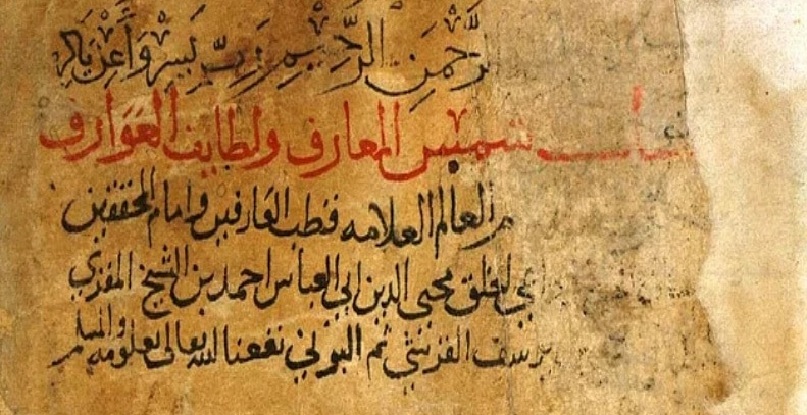 الرَّحْمَنِ الرَّحِيمِ رَبِّ يَسِّرْ وَأَعِنْ
شمس المعارف ولطايف العَوَارف
العالم العلامه قطب العَارفين وامام المحققين
محيى الدين ابى العباس احمد بن الشيخ المقري
يوسف القرشي ثم البوني نفعنا الله تعالى بعلومه